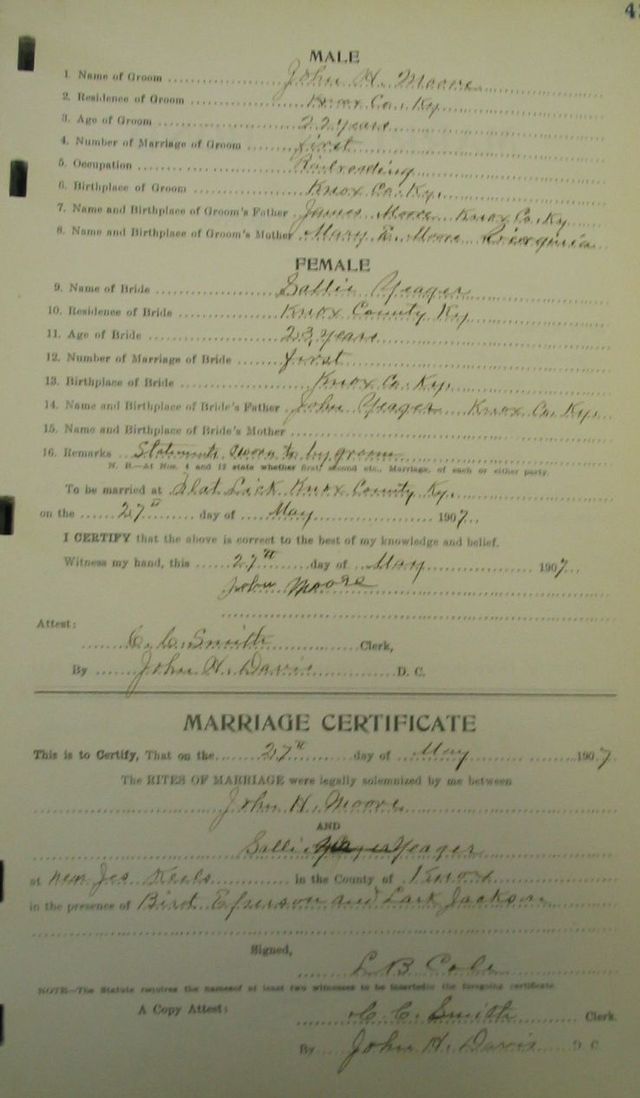 MALE
1. Name of Groom John H. Moore
2. Residence of Groom Knox Co. Ky
3. Age of Groom 22 years
4. Number of Marriage of Groom first
5. Occupation Railroading
6. Birthplace of Groom Knox Co. Ky.
7. Name and Birthplace of Groom's Father James Moore Knox Co. Ky
8. Name and Birthplace of Groom's Mother Mary E. Moore
FEMALE
9. Name of Bride Sallie Yeager
10. Residence of Bride Knox County Ky
11. Age of Bride 23 years
12. Number of Marriage of Bride first
13. Birthplace of Bride Knox Co. Ky.
14. Name and Birthplace of Bride's Father John Yeager Knox Co. Ky.
15. Name and Birthplace of Bride's Mother
16. Remarks Statements sworn to by groom
N. B.—At Nos. 4 and 12 state whether first, second etc., Marriage, of each or either party.
To be married at Flat Lick Knox County Ky.
on the 27th day of May 1907.
I CERTIFY that the above is correct to the best of my knowledge and belief.
Witness my hand, this 27th day of May 1907.
John Moore
Attest:
C. C. Smith Clerk,
By John H. Davis D. C.
MARRIAGE CERTIFICATE
This is to Certify, That on the 27th day of May 1907
The RITES OF MARRIAGE were legally solemnized by me between
John H. Moore
AND
Sallie Yeager
at in the County of Knox
in the presence of Bird and Lark Jackson
Signed,
L B Cole
NOTE—The Statute requires the names of at least two witnesses to be inserted in the foregoing certificate.
A Copy Attest: C. C. Smith Clerk
By John H. Davis D C